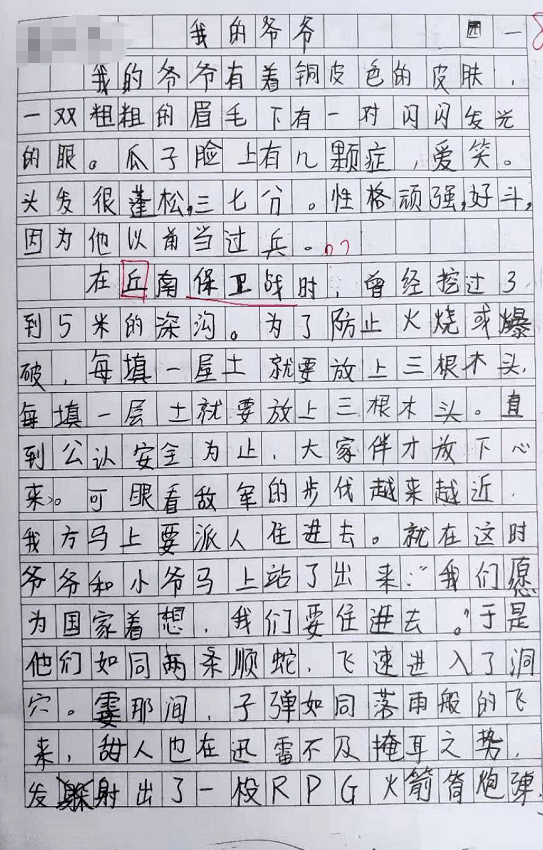 我的爷爷
我的爷爷有着铜皮色的皮肤，
一双粗粗的眉毛下有一对闪闪发光
的眼。瓜子脸上有几颗症，爱笑。
头发很蓬松，三七分。性格顽强，好斗，
因为他以前当过兵。??
在丘南保卫战时，曾经挖过3
到5米的深沟。为了防止火烧或爆
破，每填一层土就要放上三根木头，
每填一层土就要放上三根木头。直
到公认安全为止，大家伴才放下心
来。可眼看敌军的步伐越来越近，
我方马上要派人住进去。就在这时
爷爷和小爷马上站了出来："我们愿
为国家着想，我们要住进去。"于是
他们如同两条顺蛇，飞速进入了洞
穴。霎那间，子弹如同落雨般的飞
来，甜人也在迅雷不及掩耳之势，
发射出了一枚RPG火箭筒炮弹，